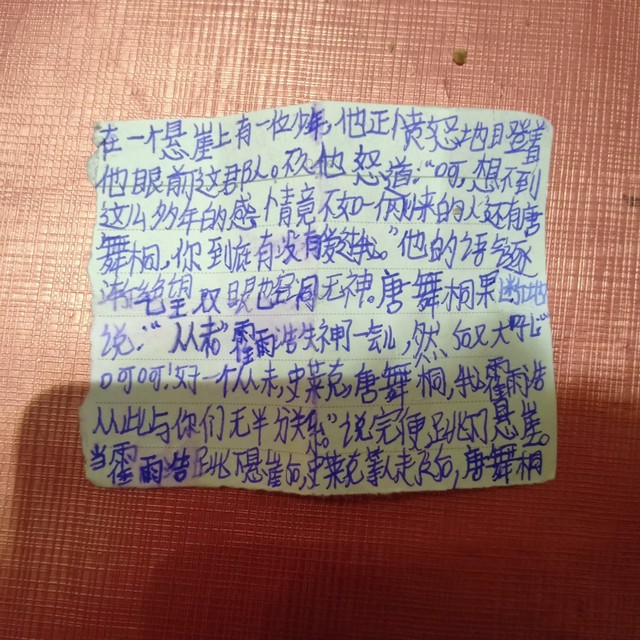 在一个悬崖上有一位少年,他正愤怒地目登着
他眼前这群人。只他怒道:“呵,想不到
这么多年的感情竟不如一个刚来的人还有唐
舞桐,你到底有没有爱过我。”他的语气逐
渐绝望双眼也空洞无神。唐舞桐果断地
说:“从未”霍雨浩失神了一会儿,然后又大
呵呵!好一个从未,史莱克,唐舞桐,我霍雨浩
从此与你们无半分关系。”说完便跳下悬崖。
当霍雨浩跳下悬崖后,史莱克等人走后,唐舞桐